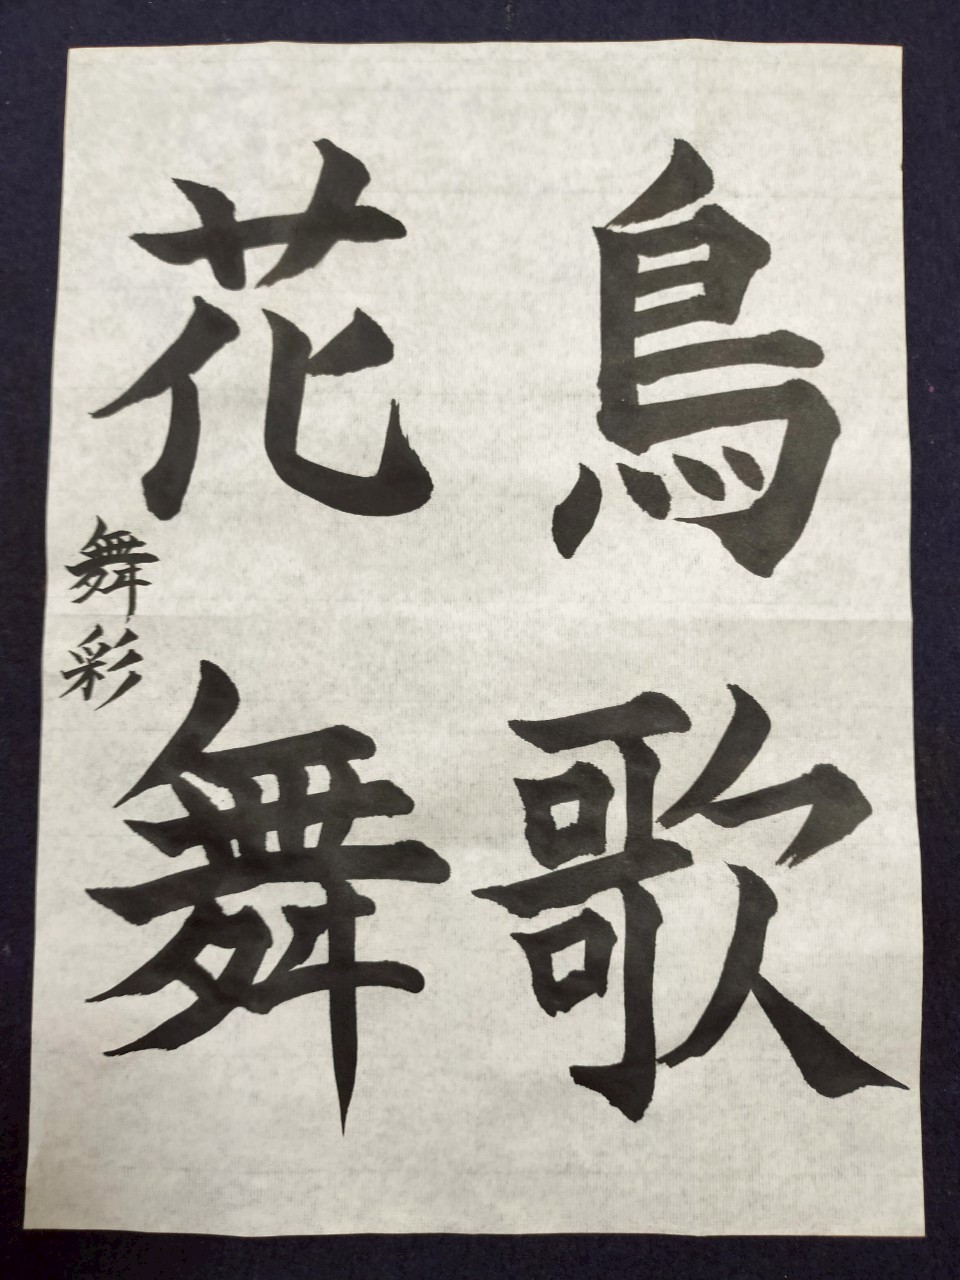 鳥歌
花舞
舞彩